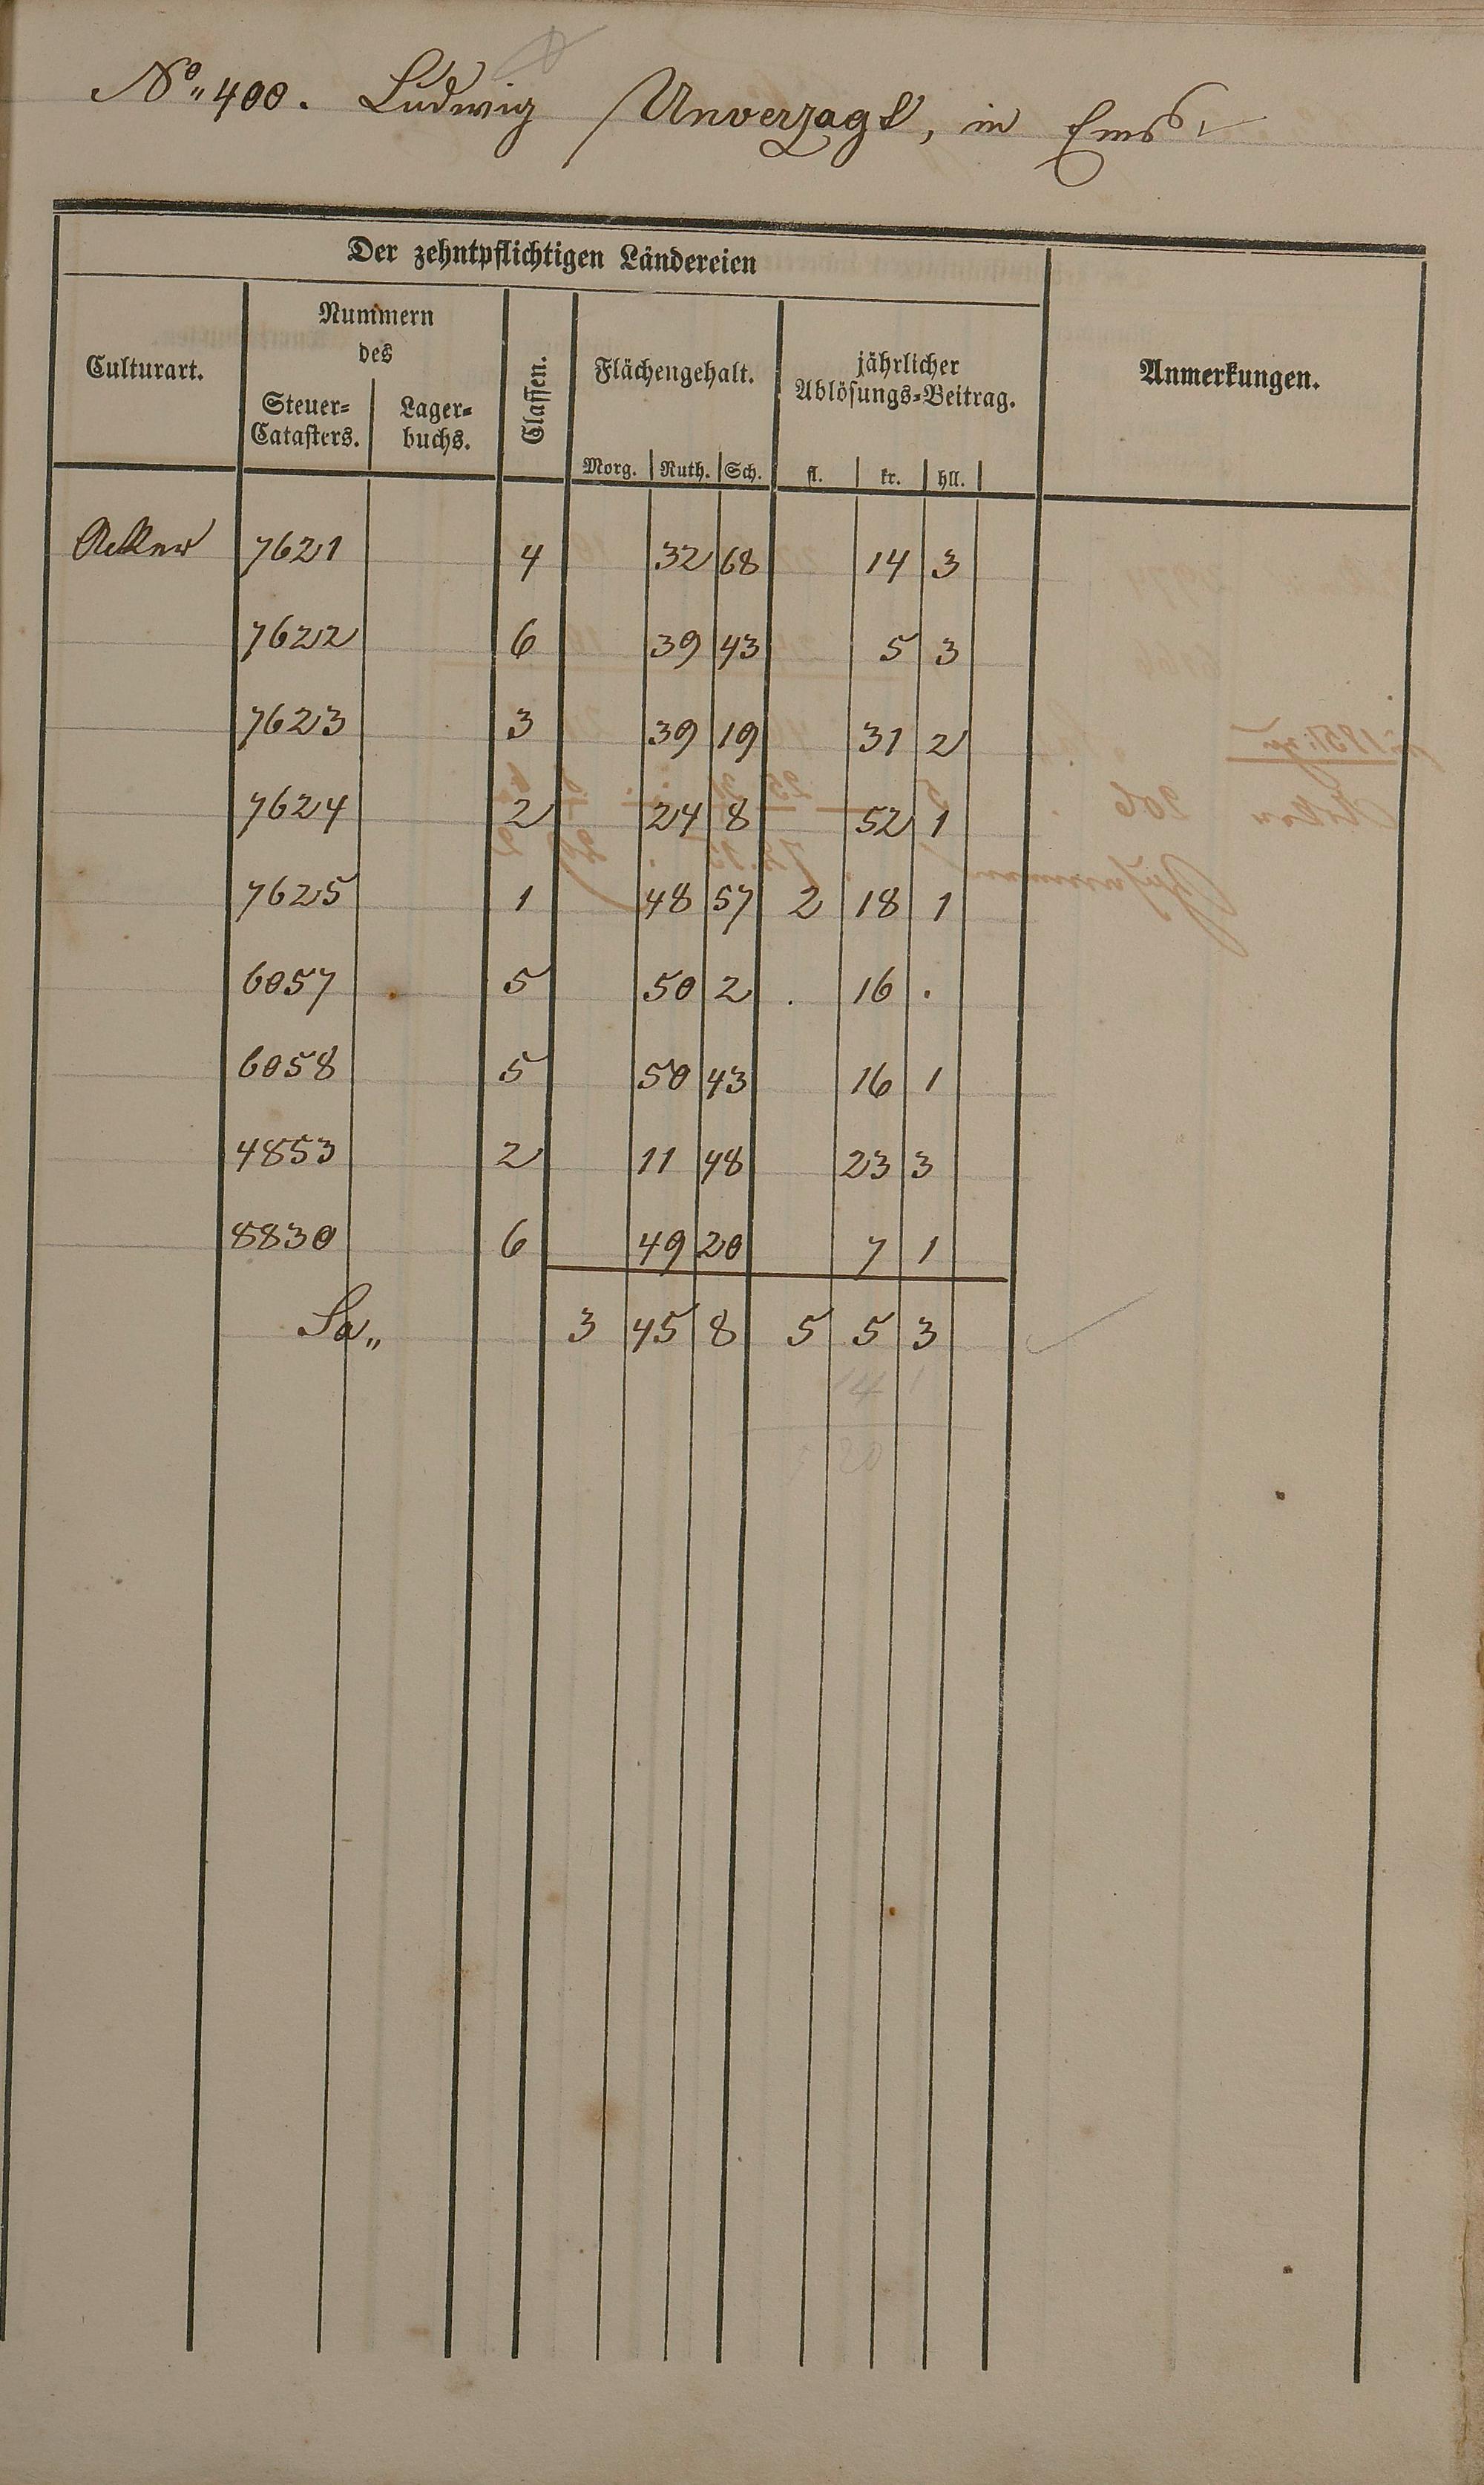 No„ 400. Ludwig Unverzagt, in Ems
Der zehntpflichtigen Ländereien
Culturart. Nummern des Steuer-Catasters. Lager-buchs. Classen. Flächengehalt. jährlicher Ablösungs-Beitrag. Anmerkungen.
Morg. Ruth. Sch. fl. kr. hll.
Acker 7621 4 32 68 14 3
7622 6 39 43 5 3
7623 3 39 19 31 2
7624 2 24 8 52 1
7625 1 48 57 2 18 1
6057 5 50 2 . 16 .
6058 5 50 43 16 1
4853 2 11 48 23 3
8830 6 49 20 7 1
Sa„ 3 45 8 5 5 3
14 1
20